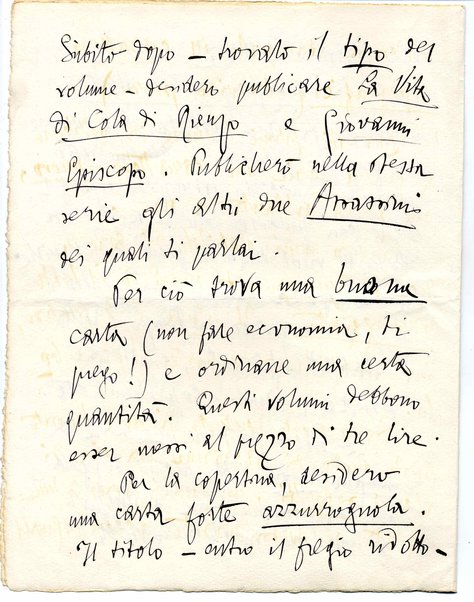 Subito dopo – trovato il tipo del
volume – desidero publicare La Vita
di Cola di Rienzo e Giovanni
Episcopo. Publicherò nella stessa
serie gli altri due Assassinii
dei quali ti parlai.
Per ciò trova una buona
carta (non fare economia, ti
prego!) e ordinane una certa
quantità. Questi volumi debbono
esser messi al prezzo di tre lire.
Per la copertina, desidero
una carta forte azzurrognola.
Il titolo – entro il fregio ridotto –